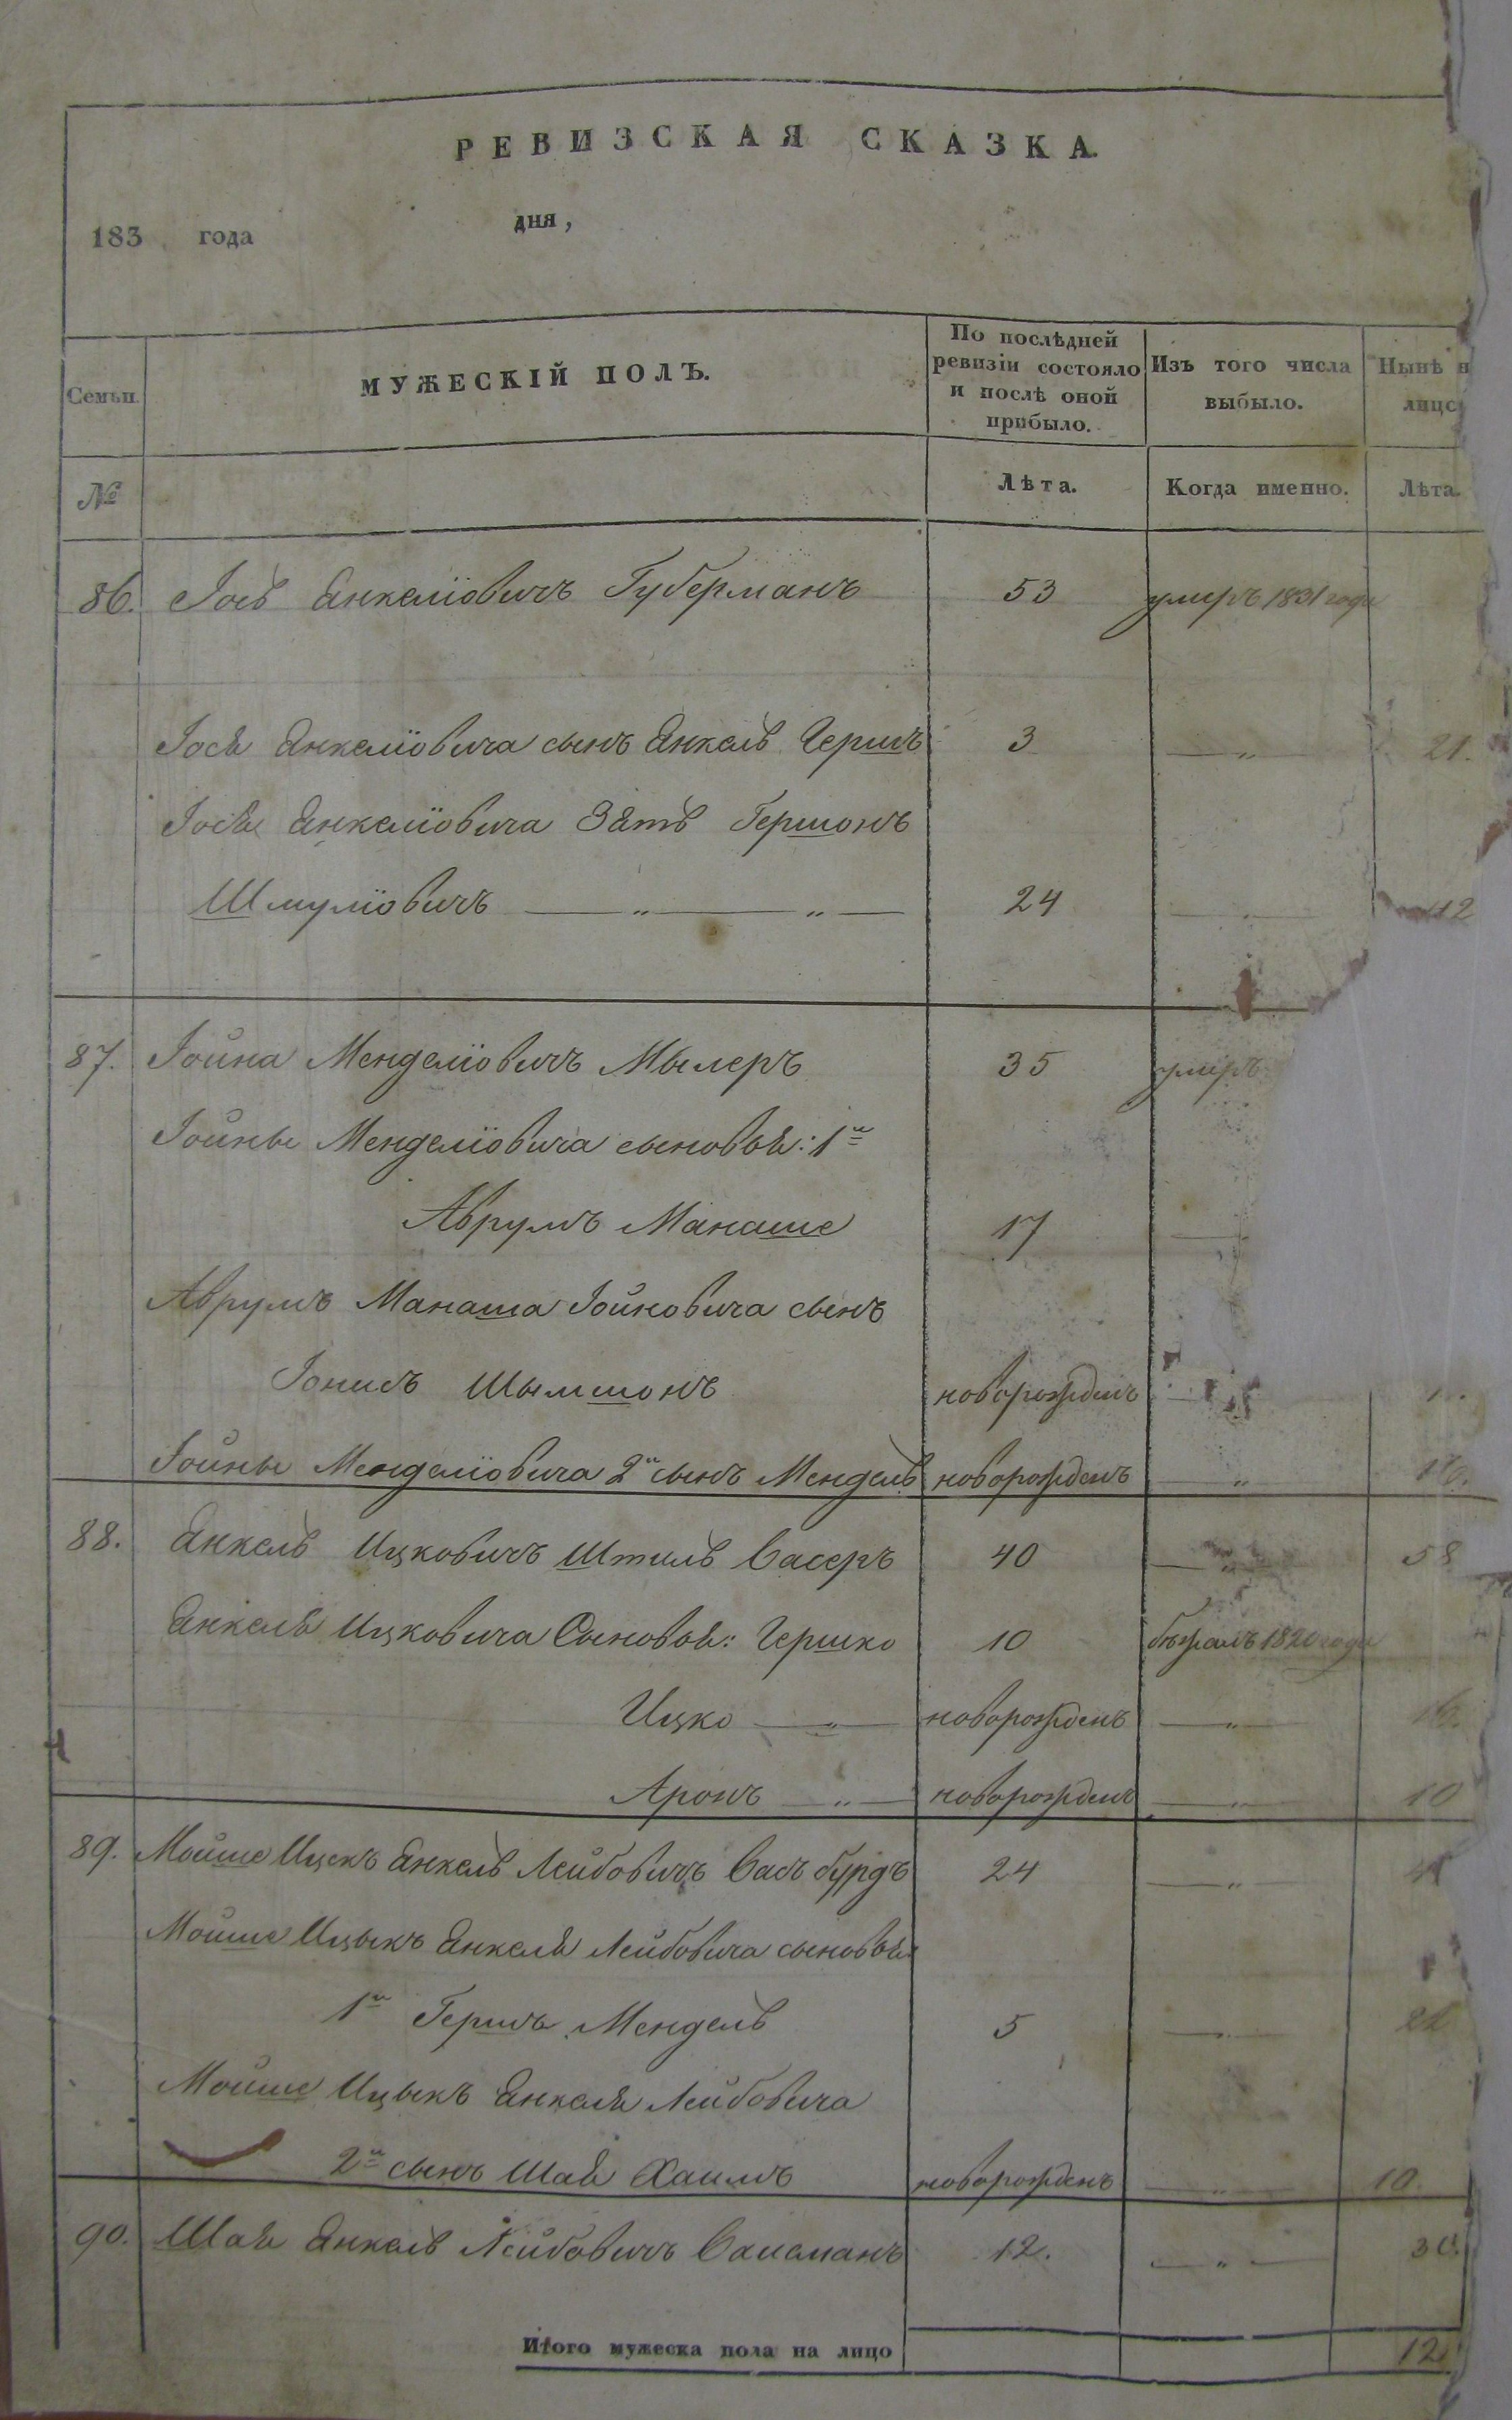 РЕВИЗСКАЯ СКАЗКА.
183 года дня,
Семьи. МУЖЕСКІЙ ПОЛЪ. По послѣдней ревизіи состояло и послѣ оной прибыло. Изъ того числа выбыло. Нынѣ н лицо
№ Лѣта. Когда именно. Лѣта.
86. Іось Янкеліовичъ Губерманъ 53 умеръ 1831 года
Іося Янкеліовича сынъ Янкель Гершъ 3 — „ — 21.
Іося Янкеліовича Зять Гершонъ
Шмуліовичъ — „ — „ — 24 — „ — 42
87. Іойна Менделіовичъ Мылеръ 35 умеръ
Іойны Менделіовича сыновья: 1й
Аврумъ Манаше 17 —
Аврумъ Манаша Іойновича сынъ
Шымшонъ новорожденъ —
Іойны Менделіовича 2й сынъ Мендель новорожденъ — „ — 16.
88. Янкель Ицковичъ Штиль Васеръ 40 — „ — 58
Янкеля Ицковича Сыновья: Гершко 10 бѣжалъ 1820 года
Ицко — „ — новорожденъ — „ — 16.
Аронъ — „ — новорожденъ — „ — 10
89. Мойше Ицекъ Янкель Лейбовичъ 24 — „ —
Мойше Ицыкъ Янкеля Лейбовича сыновья:
1й Гершъ Мендель 5 — „ —
Мойше Ицыкъ Янкеля Лейбовича
2й сынъ Шая Хаимъ новорожденъ — „ — 10.
90. Шая Янкель Лейбовичъ Вайсманъ 12. — „ — 30.
Итого мужеска пола на лицо 12